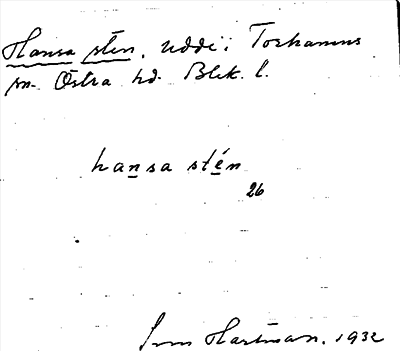 Hansa stén, udde i Torhamns
sn. Östra hd. Blek. l.
hansa stén
26
Hartman. 1932